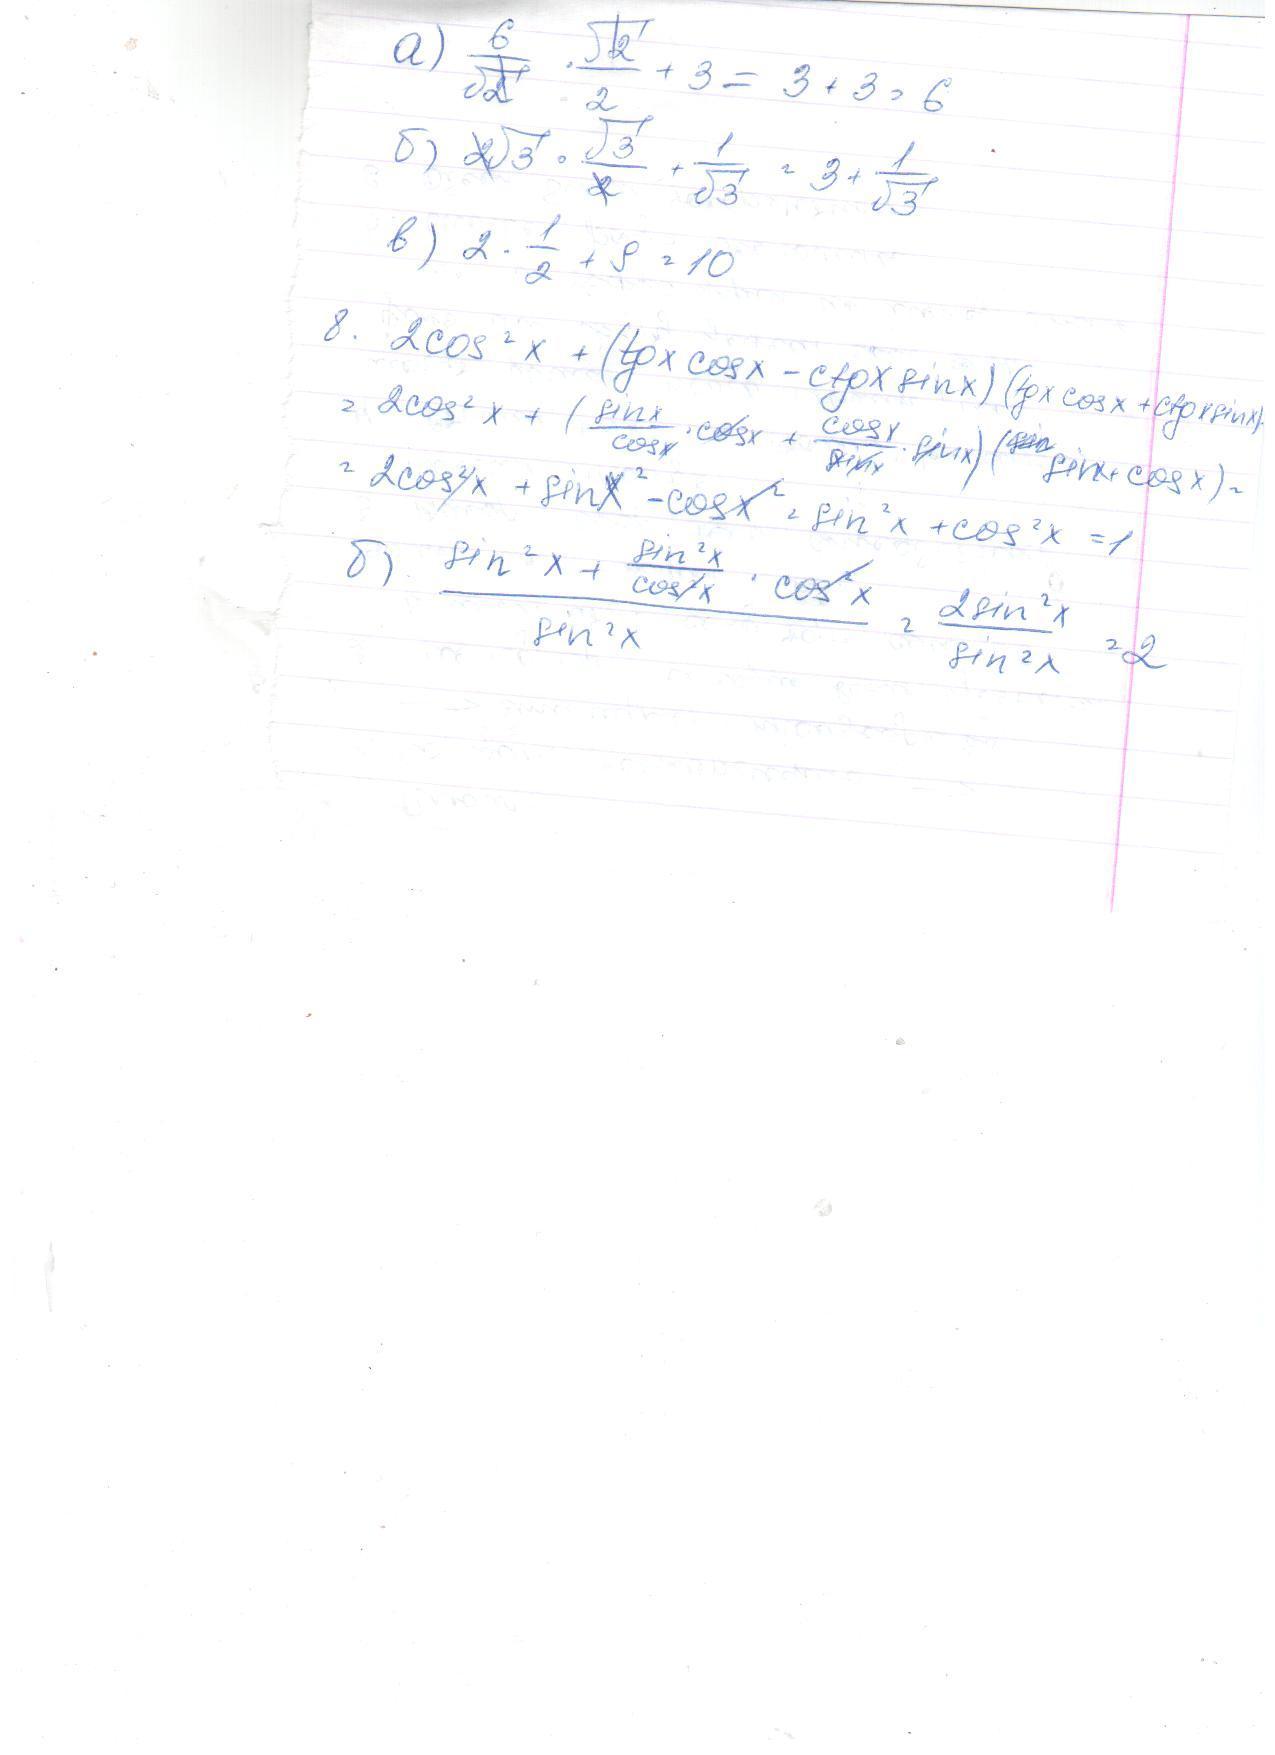 а) 6/√2 · √2/2 + 3 = 3 + 3 = 6
б) 2√3 · √3/2 + 1/√3 = 3 + 1/√3
в) 2 · 1/2 + 9 = 10
8. 2cos²x + (tgx cosx - ctgx sinx) (tgx cosx + ctgx sinx) =
= 2cos²x + (sinx/cosx · cosx + cosx/sinx · sinx) (sinx + cosx) =
= 2cos²x + sinx² - cosx² = sin²x + cos²x = 1
б) (sin²x + sin²x/cos²x · cos²x)/sin²x = 2sin²x/sin²x = 2